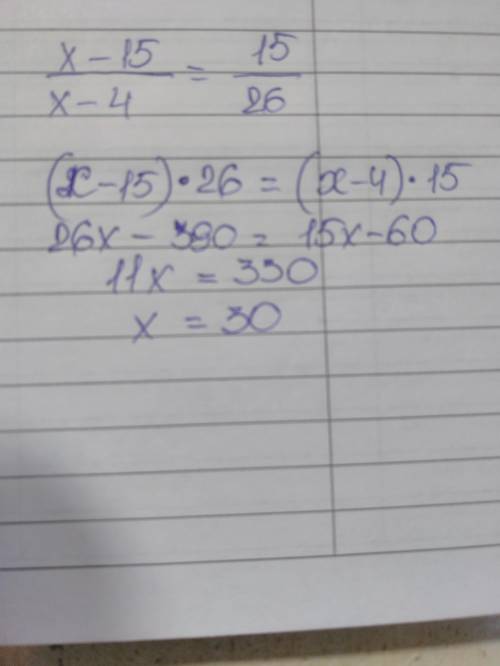 x - 15 / x - 4 = 15 / 26
(x - 15) · 26 = (x - 4) · 15
26x - 390 = 15x - 60
11x = 330
x = 30